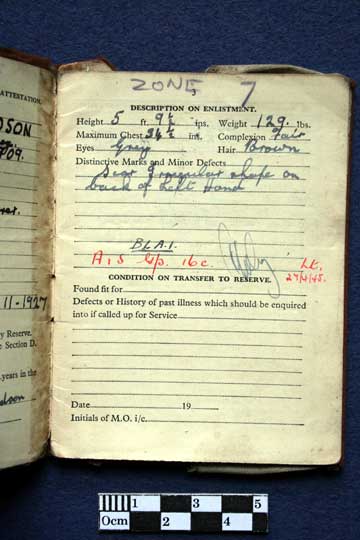 ATTESTATION.
DSON
709.
11-1927
y Reserve.
e Section D.
years in the
dson
ZONE 7
DESCRIPTION ON ENLISTMENT.
Height 5 ft. 9½ ins. Weight 129 lbs.
Maximum Chest 34½ ins. Complexion Fair
Eyes Grey Hair Brown
Distinctive Marks and Minor Defects
Scar Irregular shape on
back of Left Hand
BLA.1.
A1S Gp. 16c. Lt.
CONDITION ON TRANSFER TO RESERVE.
Found fit for
Defects or History of past illness which should be enquired
into if called up for Service
Date 19
Initials of M.O. i/c.
1 3 5
0cm 2 4